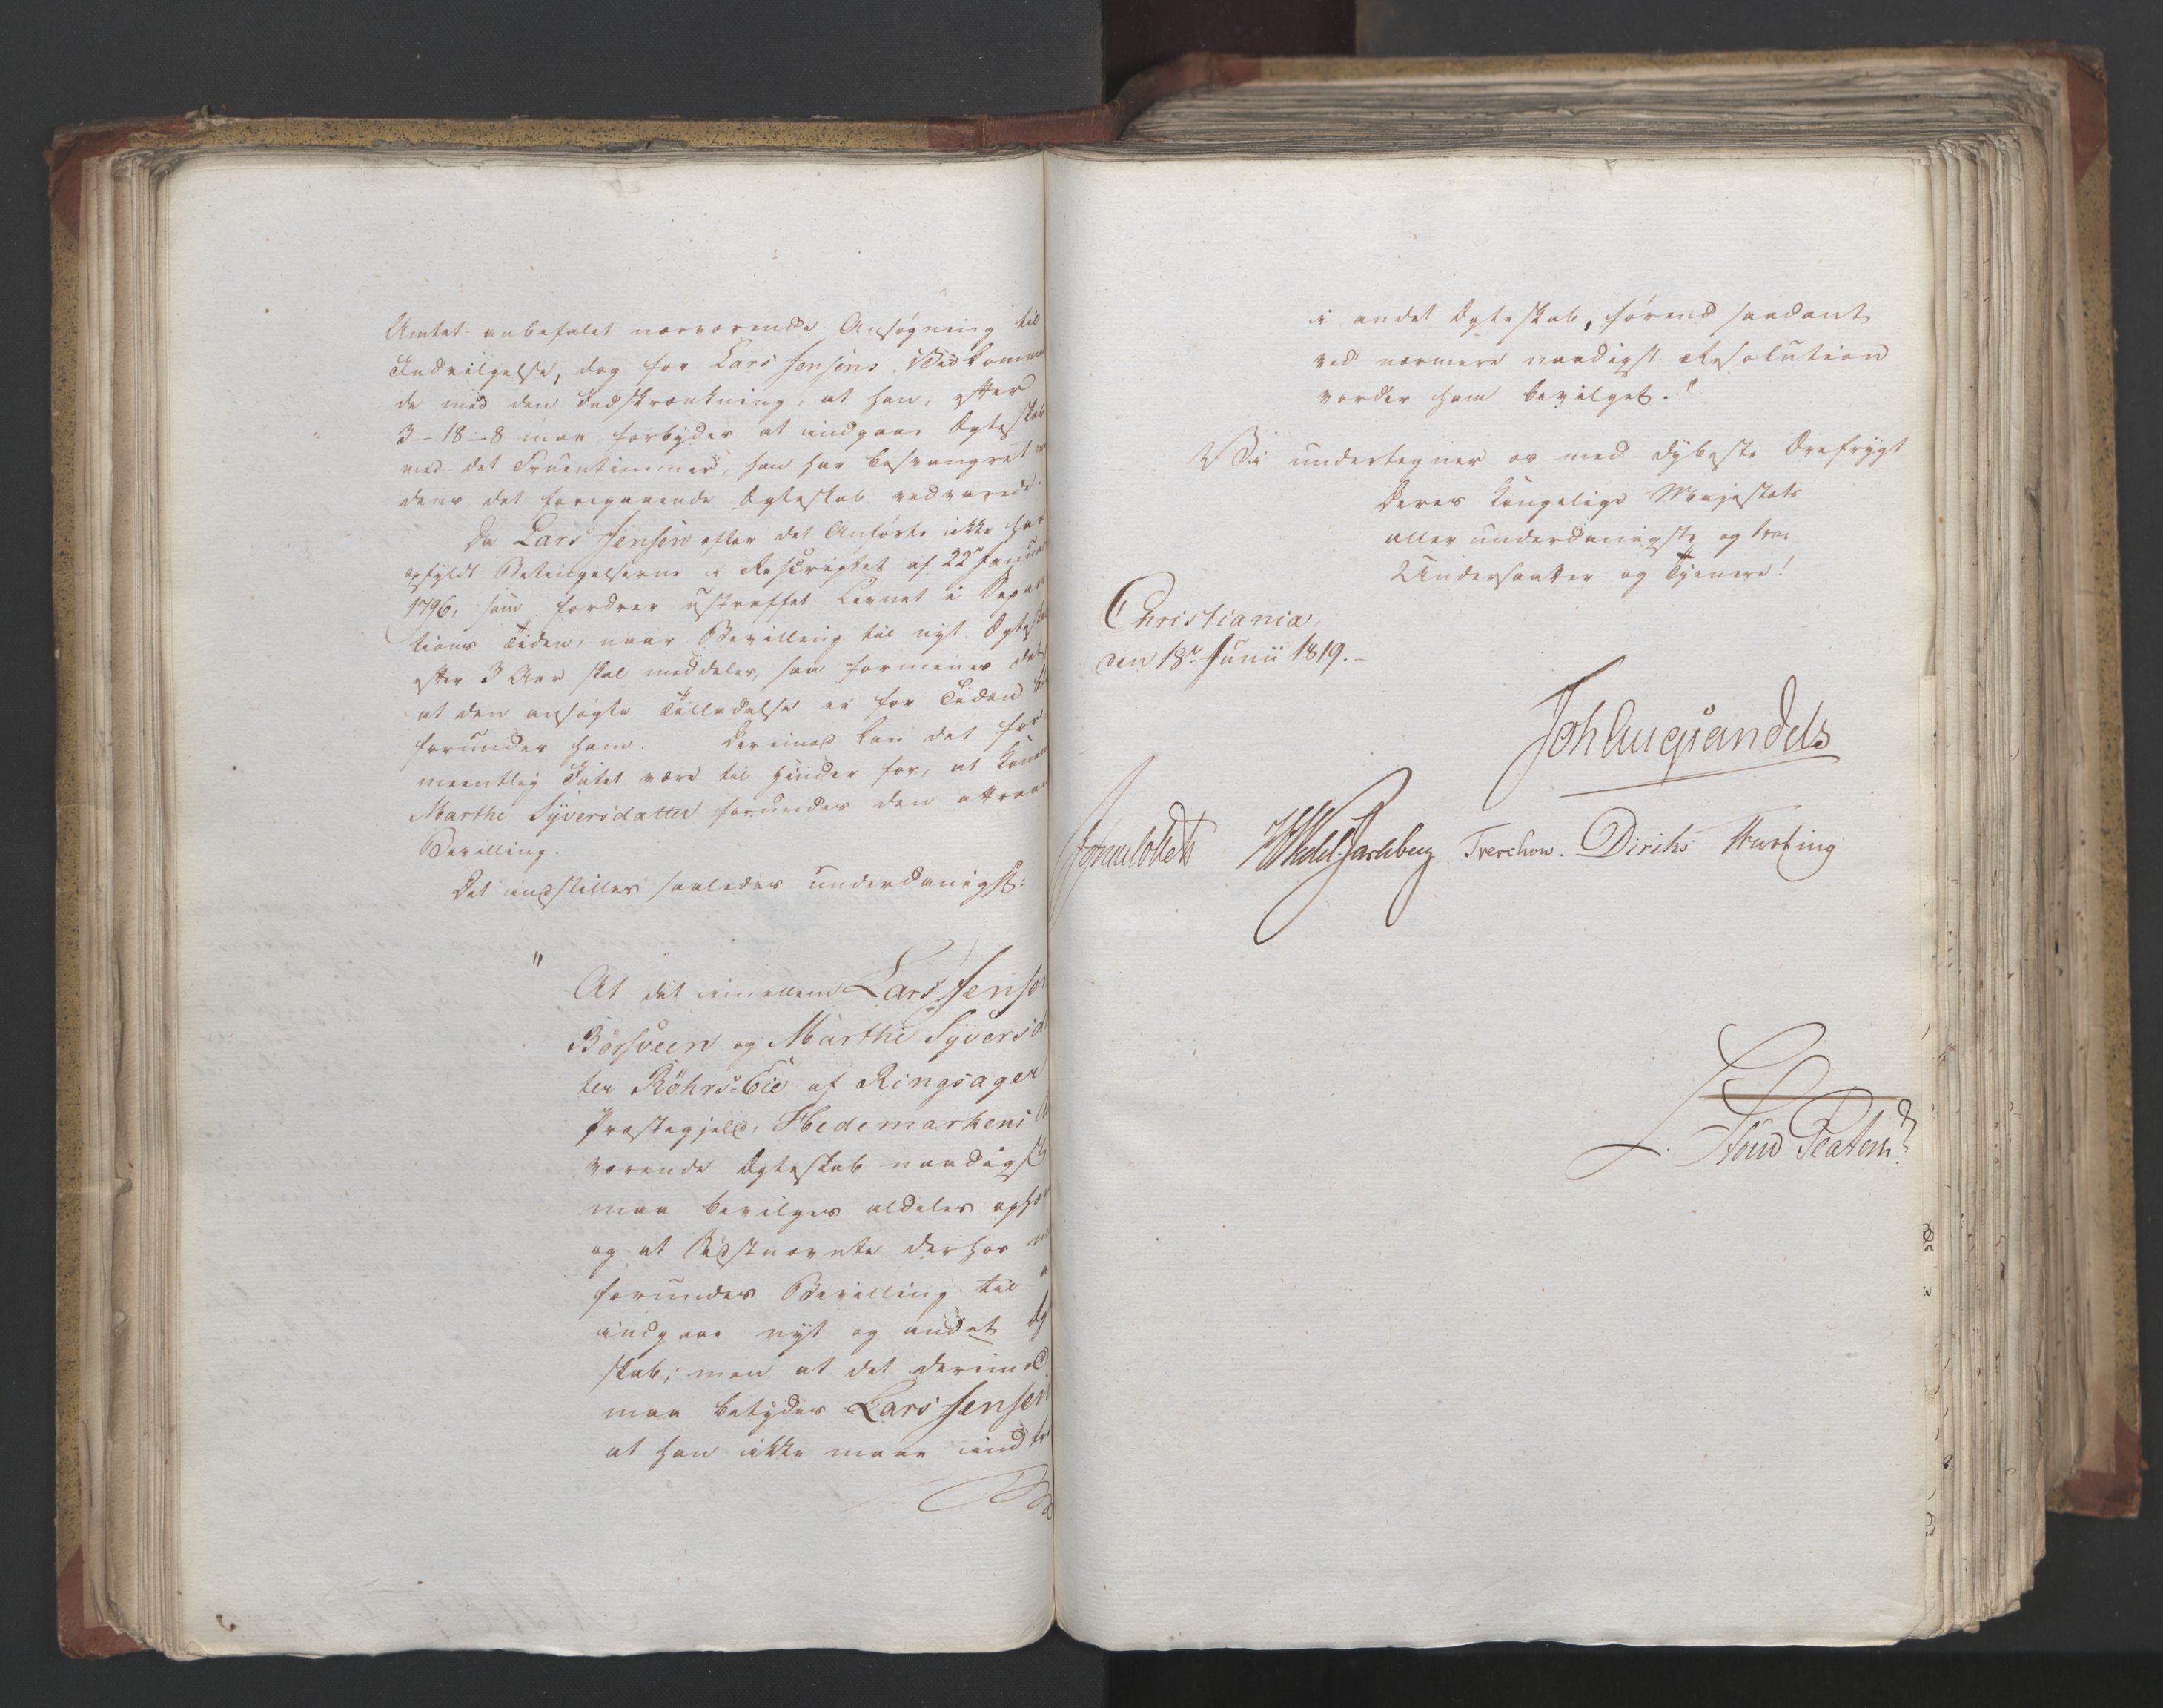 Amtet anbefalet nærværende Ansøgning til
Indvilgelse, dog for Lars Jensens Vedkommen
de med den Indskrænkning, at han, efter
3-18-8 maa forbydes at indgaae Ægteskab
med det Fruentimmer, han har besvangret me
dens det foregaaende Ægteskab vedvarede.
Da Lars Jensen efter det Anførte ikke har
opfyldt Betingelserne i Rescriptet af 22de Januar
1796, som fordrer ustraffet Levnet i Separa
tions Tiden, naar Bevilling til nyt Ægteskab
efter 3 Aar skal meddeles, saa formenes det
at den ansøgte Tilladelse ei for Tiden bør
forundes ham. Derimod kan det for
meentlig Intet være til Hinder for, at Konen
Marthe Syversdatter forundes den attraaede
Bevilling.
Det indstilles saaledes underdanigst:
" At det imellem Lars Jensen
Börsveen og Marthe Syversdat
ter Röhrs-Eie af Ringsager
Præstegjeld, Hedemarkens A
værende Ægteskab naadigst
maa bevilges aldeles ophæv
og at Sidstnævnte derhos
forundes Bevilling til
indgaae nyt og andet Æg
skab; men at det derimod
maa betydes Lars Jensen
at han ikke maae indtræ
i andet Ægteskab, førend saadant
ved nærmere naadigst Resolution
vorder ham bevilget."
Vi undertegner os med dybeste Ærefrygt
Deres Kongelige Majestæts
allerunderdanigste og troe
Undersaatter og Tjenere!
Christiania,
den 18de Junii 1819.-
Joh Aug Sandels
Sommerhielm HWedel Jarlsberg Treschow. Diriks Fasting